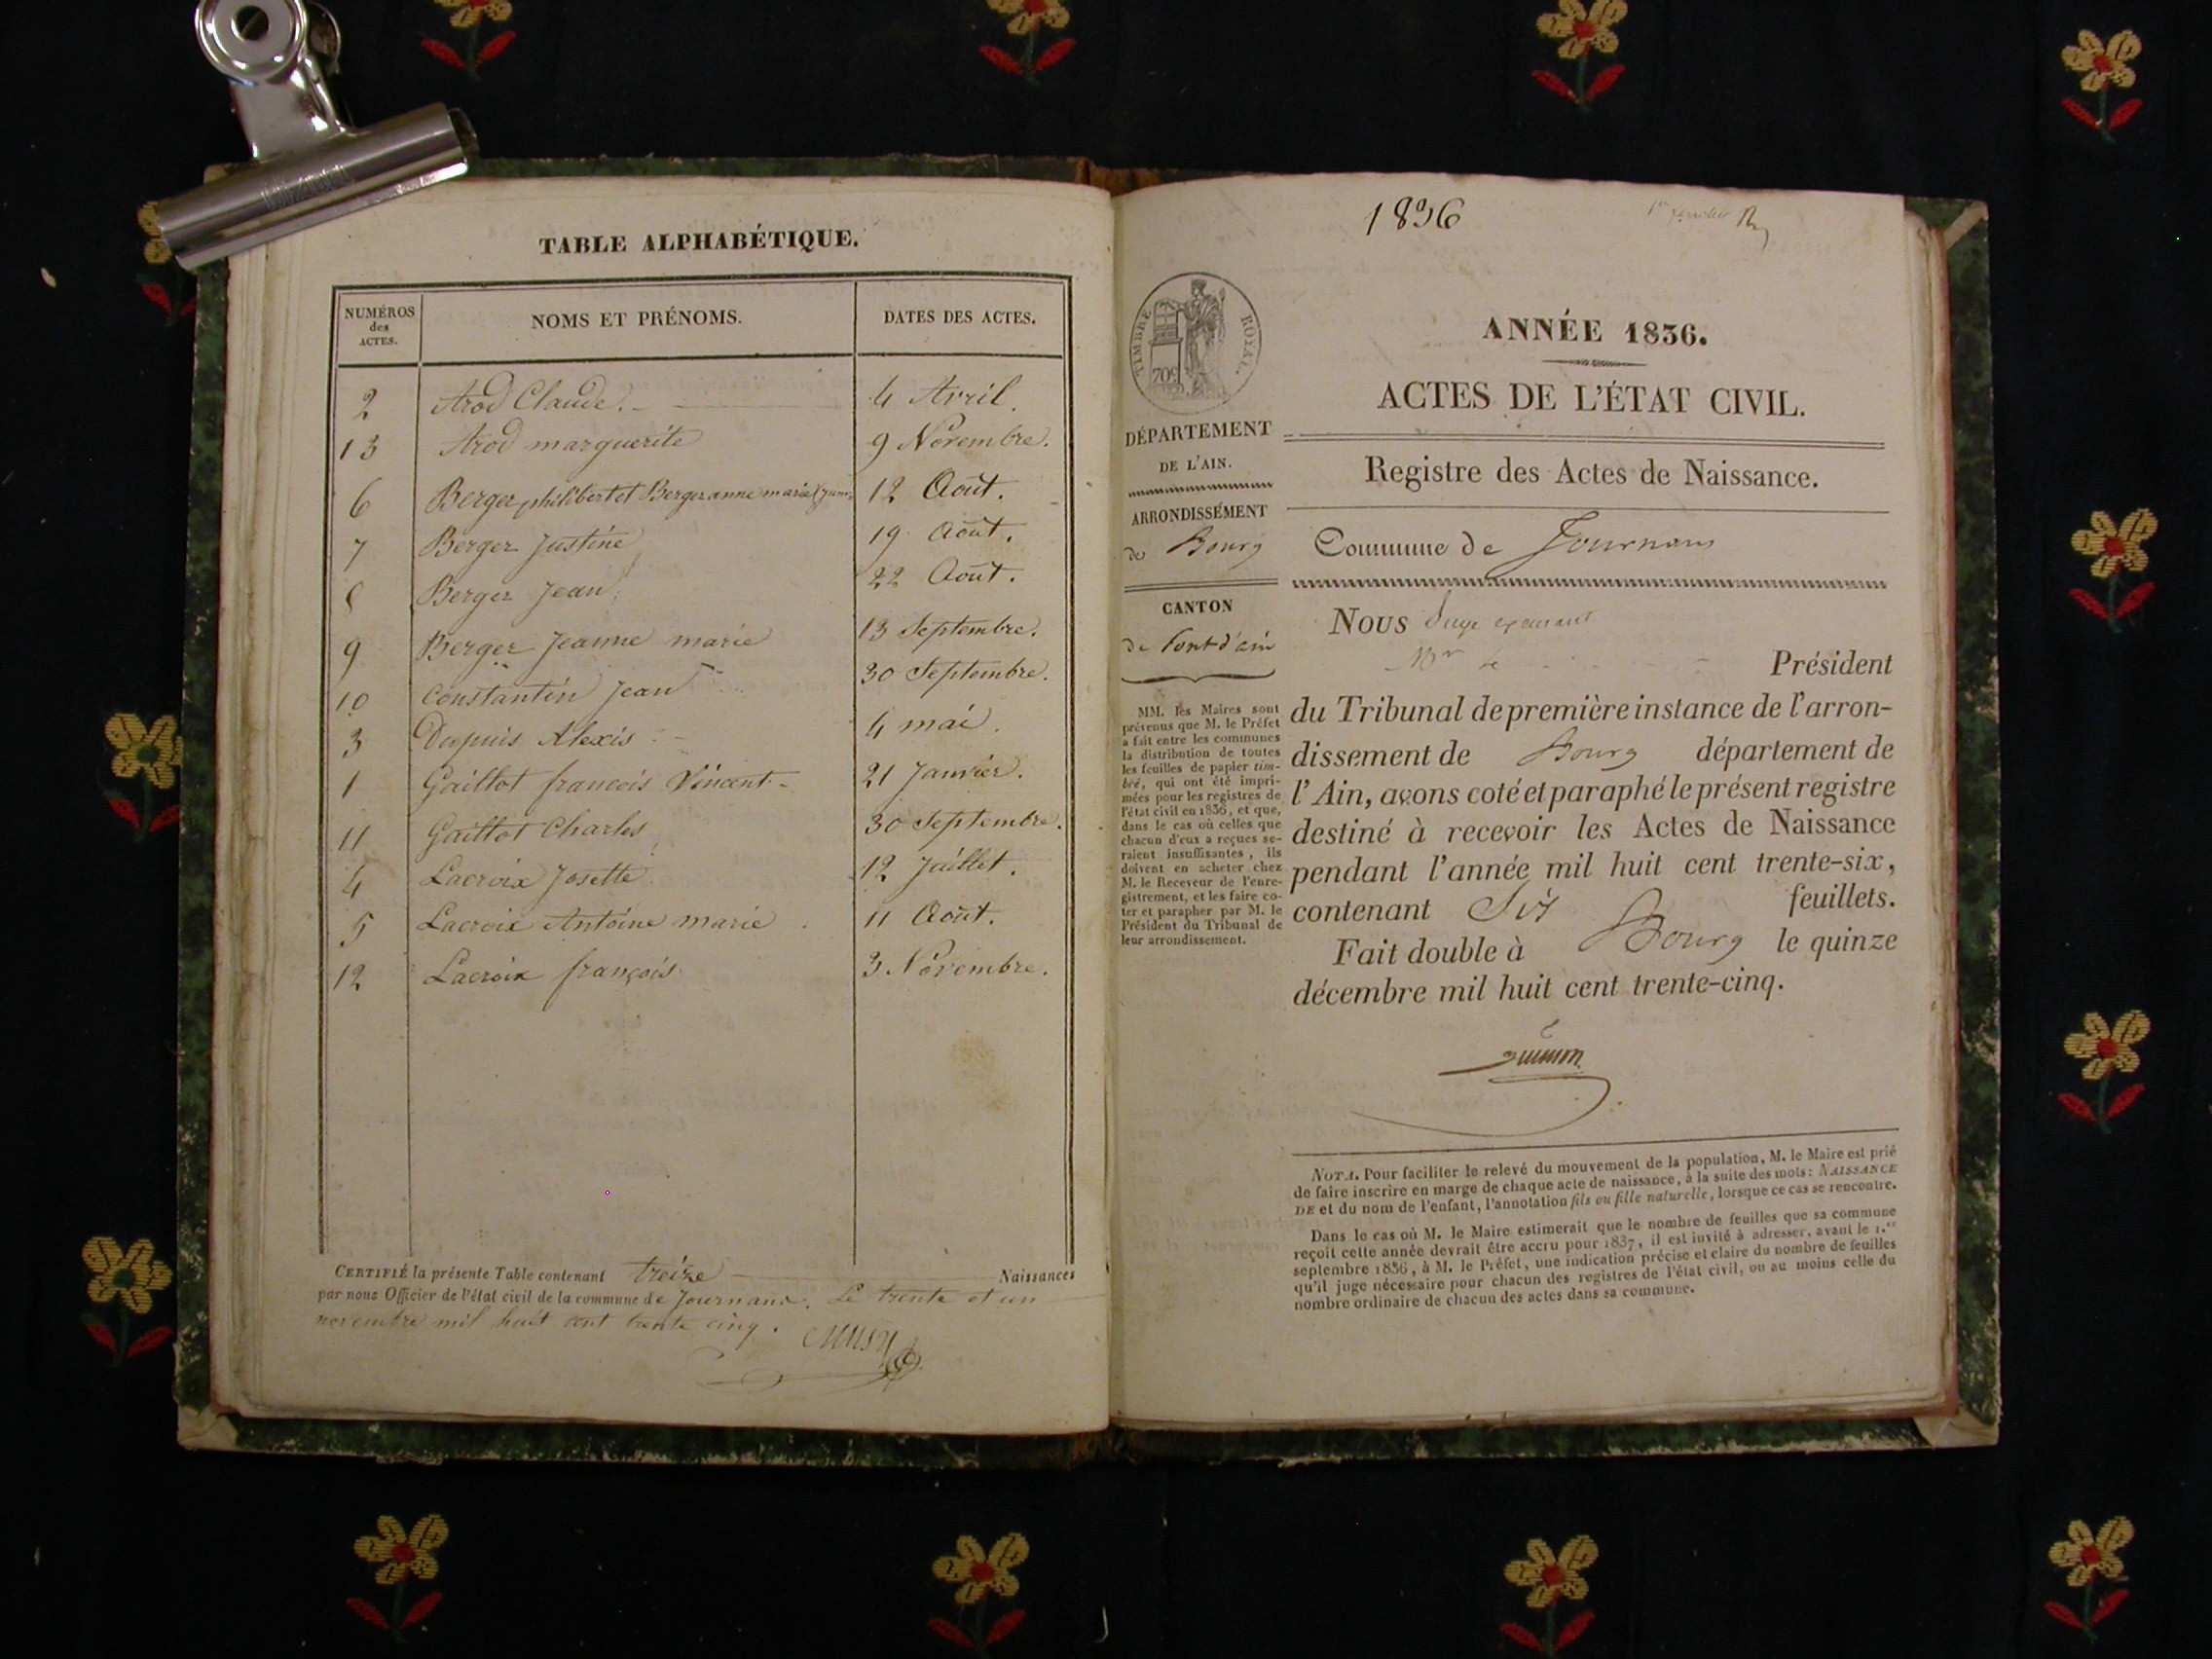 TABLE ALPHABÉTIQUE.
NUMÉROS des ACTES. NOMS ET PRÉNOMS. DATES DES ACTES.
2 Arod Claude. 4 Avril.
13 Arod marguerite 9 Novembre.
6 Berger philibert et Berger anne marie 12 Août.
7 Berger Justine 19 Août.
8 Berger Jean 22 Août.
9 Berger Jeanne marie 13 Septembre.
10 Constantin Jean 30 Septembre.
3 Dupuis Alexis 4 mai.
1 Gaillot francois Vincent 21 Janvier.
11 Gaillot Charles 30 Septembre.
4 Lacroix Josette 12 Juillet.
5 Lacroix Antoine marie 11 Août.
12 Lacroix françois 3 Novembre.
CERTIFIÉ la présente Table contenant treize Naissances
par nous Officier de l'état civil de la commune de Journans. Le trente et un
novembre mil huit cent trente cinq.
Musy
1836
TIMBRE ROYAL.
DÉPARTEMENT
DE L'AIN.
ARRONDISSEMENT
de Bourg
CANTON
de Pont d'ain
MM. les Maires sont
prévenus que M. le Préfet
a fait entre les communes
la distribution de toutes
les feuilles de papier tim-
bré, qui ont été impri-
mées pour les registres de
l'état civil en 1836, et que,
dans le cas où celles que
chacun d'eux a reçues se-
raient insuffisantes, ils
doivent en acheter chez
M. le Receveur de l'enre-
gistrement, et les faire co-
ter et parapher par M. le
Président du Tribunal de
leur arrondissement.
ANNÉE 1836.
ACTES DE L'ÉTAT CIVIL.
Registre des Actes de Naissance.
Commune de Journans
NOUS Juge
Président
du Tribunal de première instance de l'arron-
dissement de Bourg département de
l'Ain, avons coté et paraphé le présent registre
destiné à recevoir les Actes de Naissance
pendant l'année mil huit cent trente-six,
contenant Six feuillets.
Fait double à Bourg le quinze
décembre mil huit cent trente-cinq.
NOTA. Pour faciliter le relevé du mouvement de la population, M. le Maire est prié
de faire inscrire en marge de chaque acte de naissance, à la suite des mots: NAISSANCE
DE et du nom de l'enfant, l'annotation fils ou fille naturelle, lorsque ce cas se rencontre.
Dans le cas où M. le Maire estimerait que le nombre de feuilles que sa commune
reçoit cette année devrait être accru pour 1837, il est invité à adresser, avant le 1.er
septembre 1836, à M. le Préfet, une indication précise et claire du nombre de feuilles
qu'il juge nécessaire pour chacun des registres de l'état civil, ou au moins celle du
nombre ordinaire de chacun des actes dans sa commune.